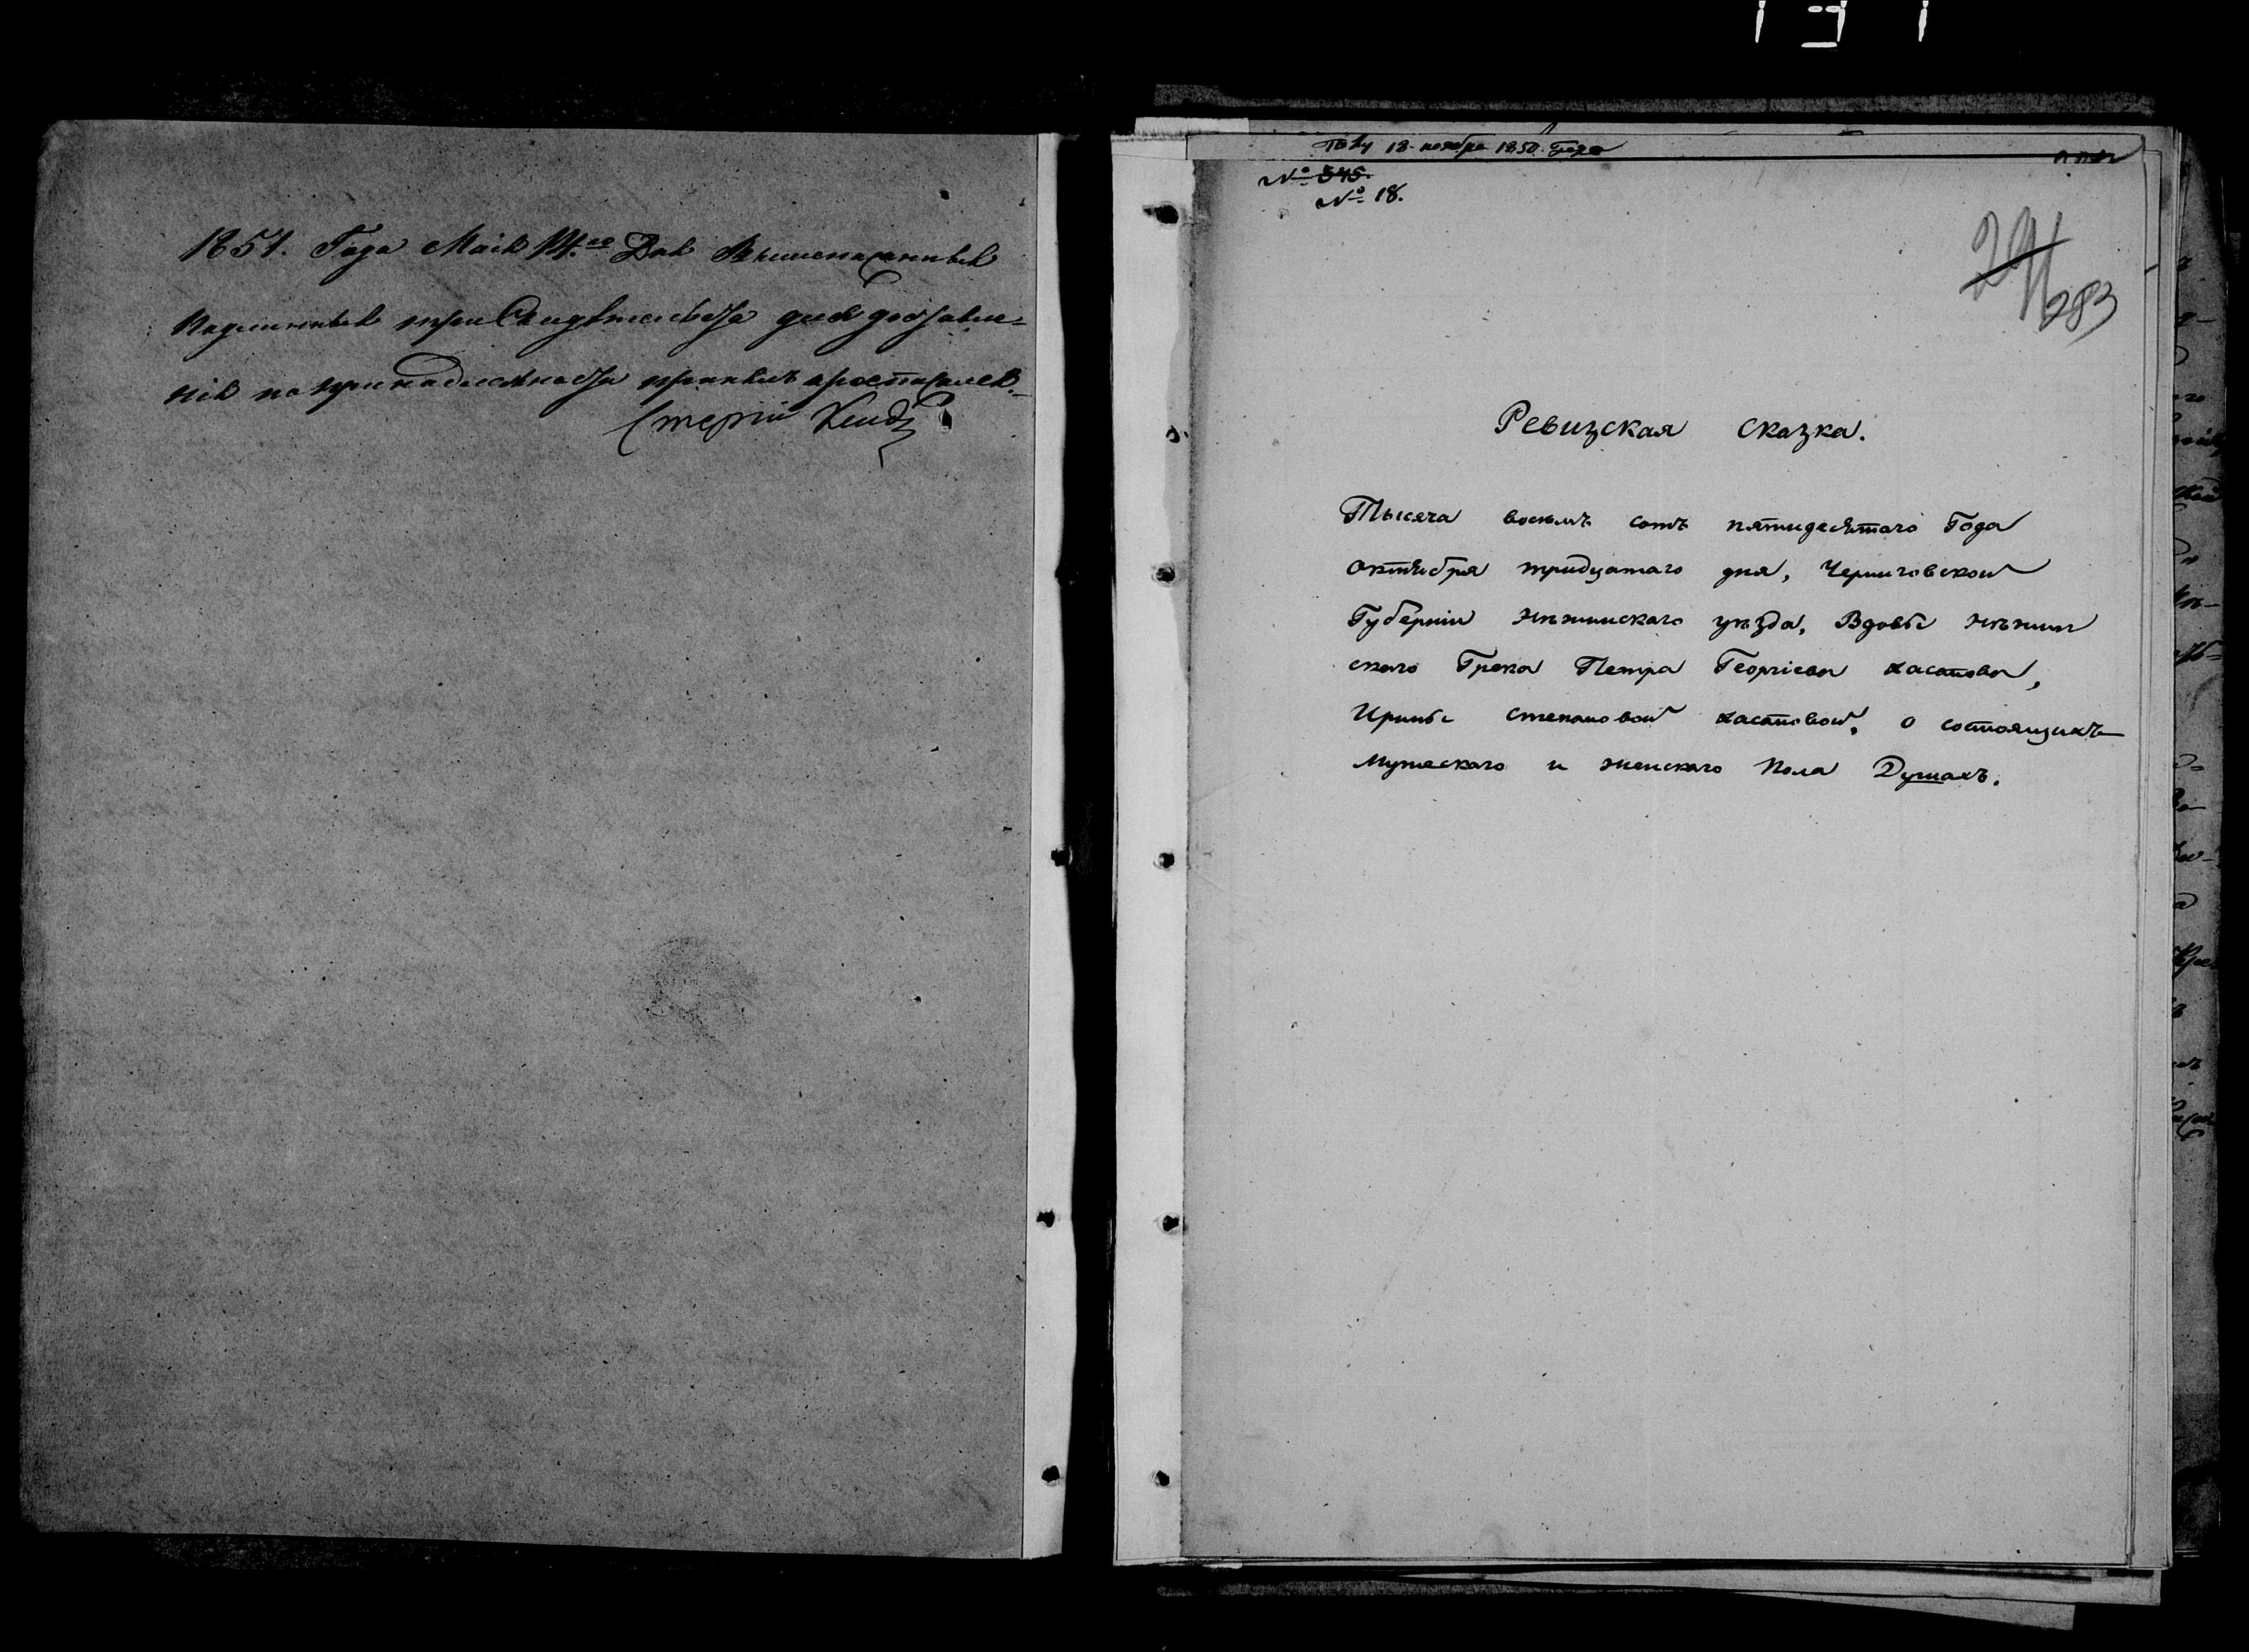 1851. Года Маія 14.го Дня Вышеписанныя
подлинныя три Свидѣтельства для доставле=
нія по принадлежности принялъ и росписался.
Стерій
18 ноября 1850. Года
№ 545.
№ 18.
291
283
Ревизская сказка.
Тысяча восемь сотъ пятидесятаго Года
октября тридцатаго дня, Черниговской
Губерніи нѣжинскаго уѣзда, Вдовы нѣжин
скаго Грека Петра Георгіева хастова,
Ирины степановой хастовой, о состоящихъ
мужескаго и женскаго пола Душахъ.